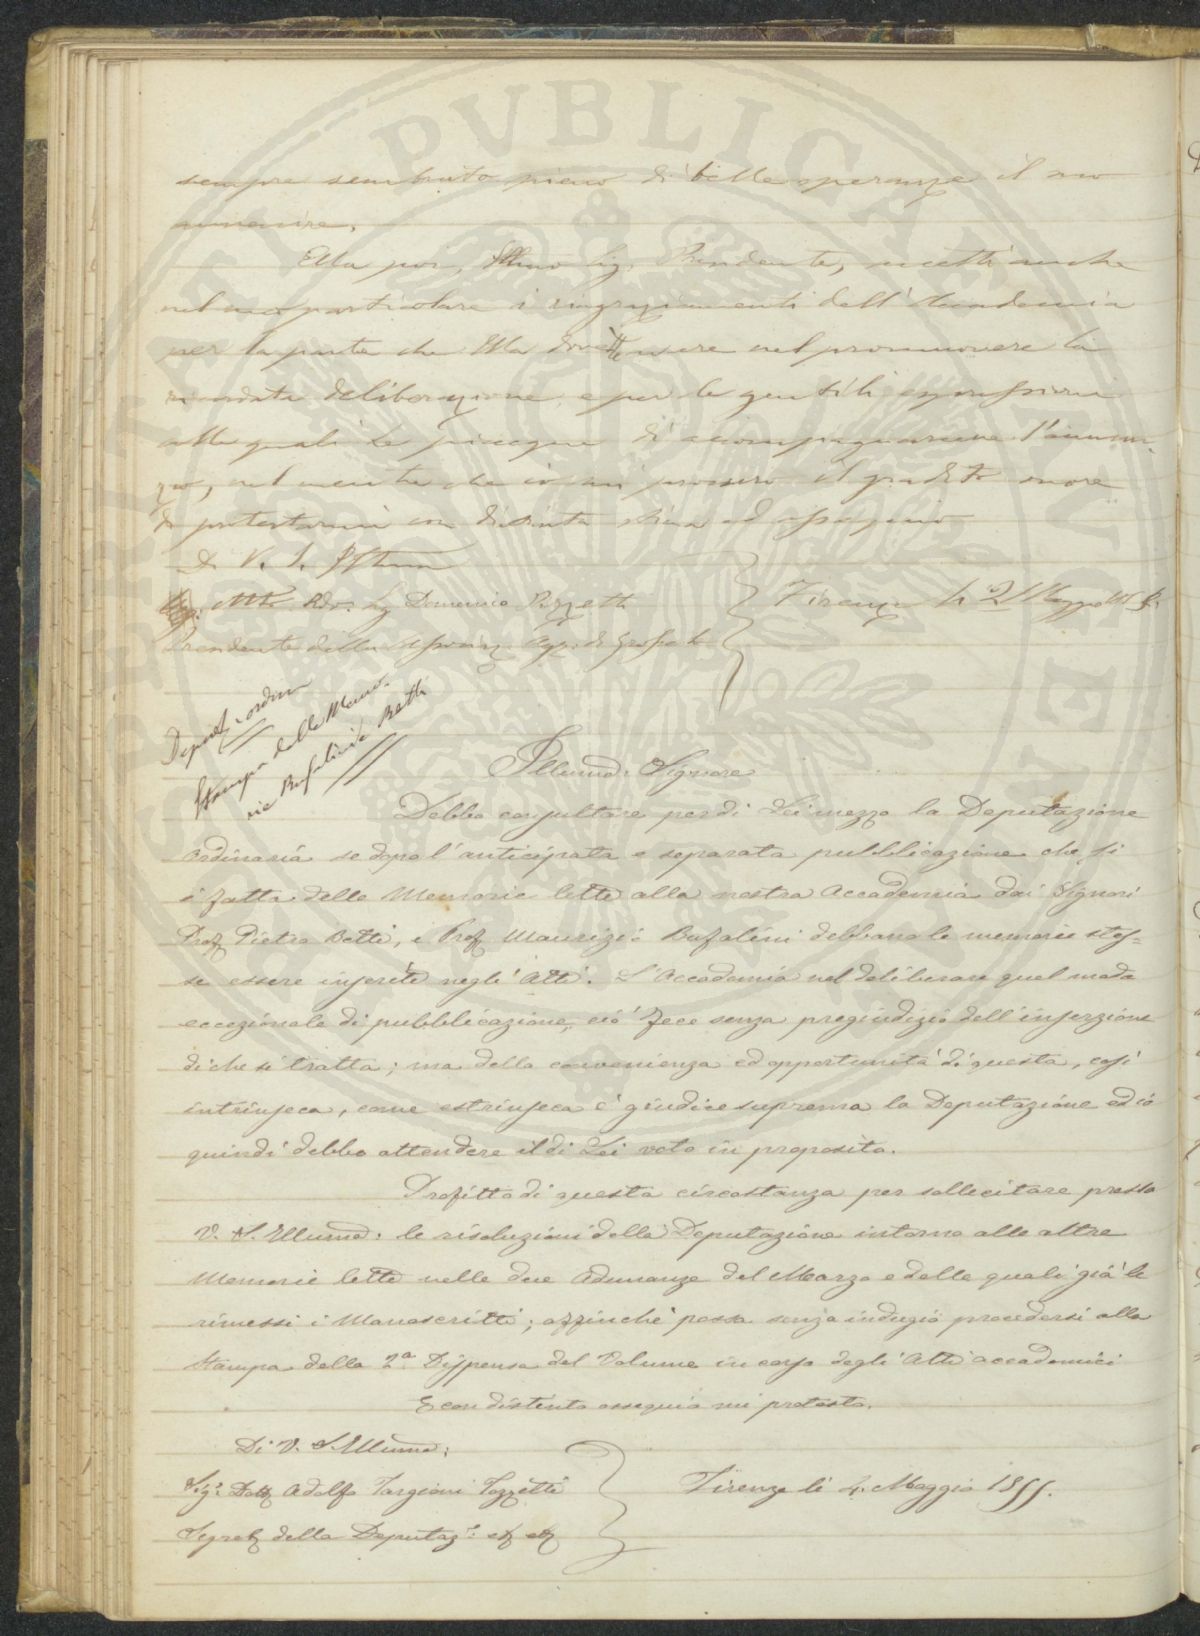 sempre sembrato pieno di belle speranze il suo
avvenire.
Ella poi, Illmo Sig. Presidente, accetti anche
nel suo particolare i ringraziamenti dell'Accademia
per la parte che Ella dovette avere nel promuovere la
ricordata deliberazione, e per le gentili espressioni
alle quali Le piacque di accompagnarmene l'annun-
zio, nel mentre che io mi procuro il gradito onore
di protestarmi con distinta stima ed ossequio
D. V. S. Illma
Molto Rdo. Sig Domenico Pizzetti
Presidente della Agr. di Grosseto
Firenze li 2 Maggio
Deputaz. ordin
Stampa delle Memo.
rie Bufalini e Betti
Illumo: Signore
Debbo consultare per di Lei mezzo la Deputazione
ordinaria se dopo l'anticipata e separata pubblicazione che si
è fatta delle Memorie lette alla nostra Accademia dai Signori
Prof. Pietro Betti, e Prof. Maurizio Bufalini debbano le memorie stes=
se essere inserite negli Atti. L'Accademia nel deliberare quel modo
eccezionale di pubblicazione, ciò fece senza pregiudizio dell'inserzione
di che si tratta; ma della convenienza ed opportunità di questa, così
intrinseca, come estrinseca è giudice suprema la Deputazione ed io
quindi debbo attendere il di Lei voto in proposito.
Profitto di questa circostanza per sollecitare presso
V. S. Illuma: le risoluzioni della Deputazione intorno alle altre
Memorie lette nelle due Adunanze del Marzo e delle quali già le
rimessi i Manoscritti; affinchè possa senza indugio procedersi alla
Stampa della 2.a Dispensa del Volume in corso degli Atti accademici
E con distinto ossequio mi protesto.
Di V. S. Illuma:
Sigr. Dott Adolfo Targioni Tozzetti
Segret della Deputaz.e ec ec
Firenze li 4. Maggio 1855.
PVBLICA